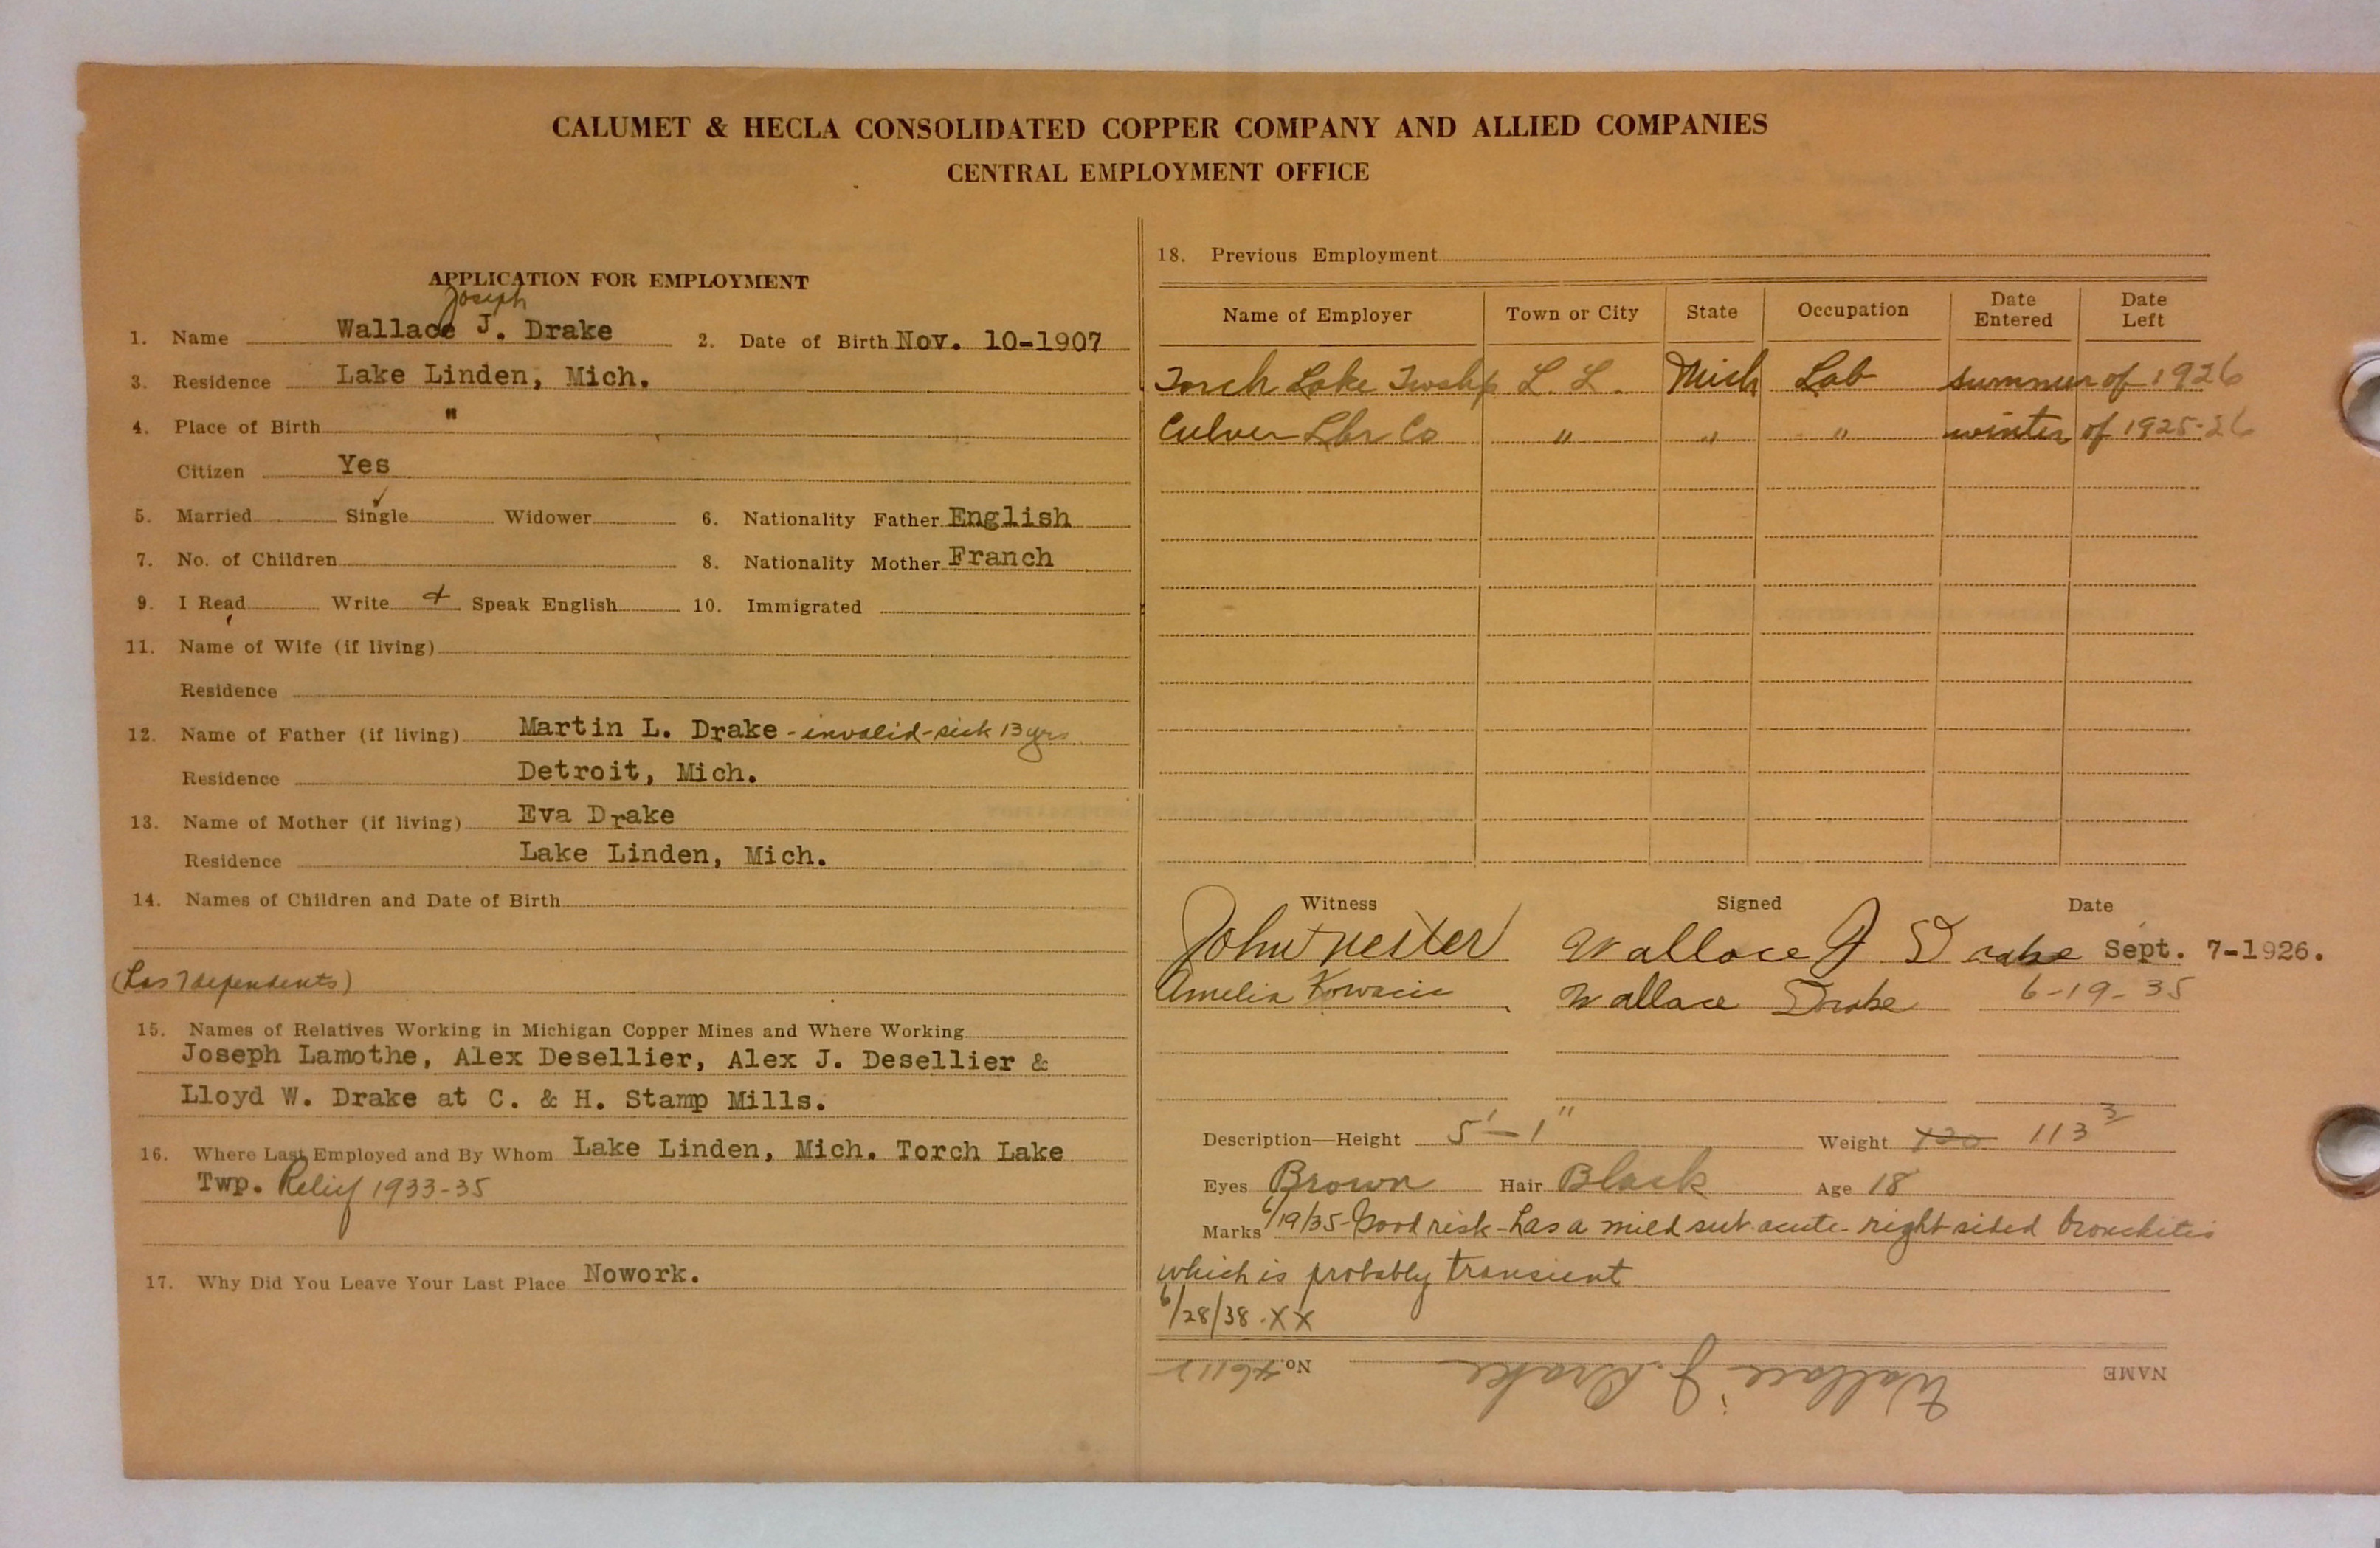 CALUMET & HECLA CONSOLIDATED COPPER COMPANY AND ALLIED COMPANIES
CENTRAL EMPLOYMENT OFFICE
APPLICATION FOR EMPLOYMENT
Joseph
1. Name Wallace J. Drake 2. Date of Birth Nov. 10-1907
3. Residence Lake Linden, Mich.
4. Place of Birth "
Citizen Yes
5. Married Single ✓ Widower 6. Nationality Father English
7. No. of Children 8. Nationality Mother Franch
9. I Read Write & Speak English 10. Immigrated
11. Name of Wife (if living)
Residence
12. Name of Father (if living) Martin L. Drake - invalid - sick 13 yrs
Residence Detroit, Mich.
13. Name of Mother (if living) Eva Drake
Residence Lake Linden, Mich.
14. Names of Children and Date of Birth
(Has 7 dependents)
15. Names of Relatives Working in Michigan Copper Mines and Where Working
Joseph Lamothe, Alex Desellier, Alex J. Desellier &
Lloyd W. Drake at C. & H. Stamp Mills.
16. Where Last Employed and By Whom Lake Linden, Mich. Torch Lake
Twp. Relief 1933-35
17. Why Did You Leave Your Last Place Nowork.
18. Previous Employment
Name of Employer Town or City State Occupation Date Entered Date Left
Torch Lake Twship L. L. Mich Lab summer of 1926
Culver Lbr Co " " " winter of 1925-26
Witness Signed Date
John Nester Wallace J Drake Sept. 7-1926.
Amelia Wallace Drake 6-19-35
Description—Height 5'-1" Weight 120 113
Eyes Brown Hair Black Age 18
Marks 6/19/35 - Good risk - has a mild sub acute - right sided bronchitis
which is probably transient
6/28/38 - XX
NAME Wallace J. Drake No.